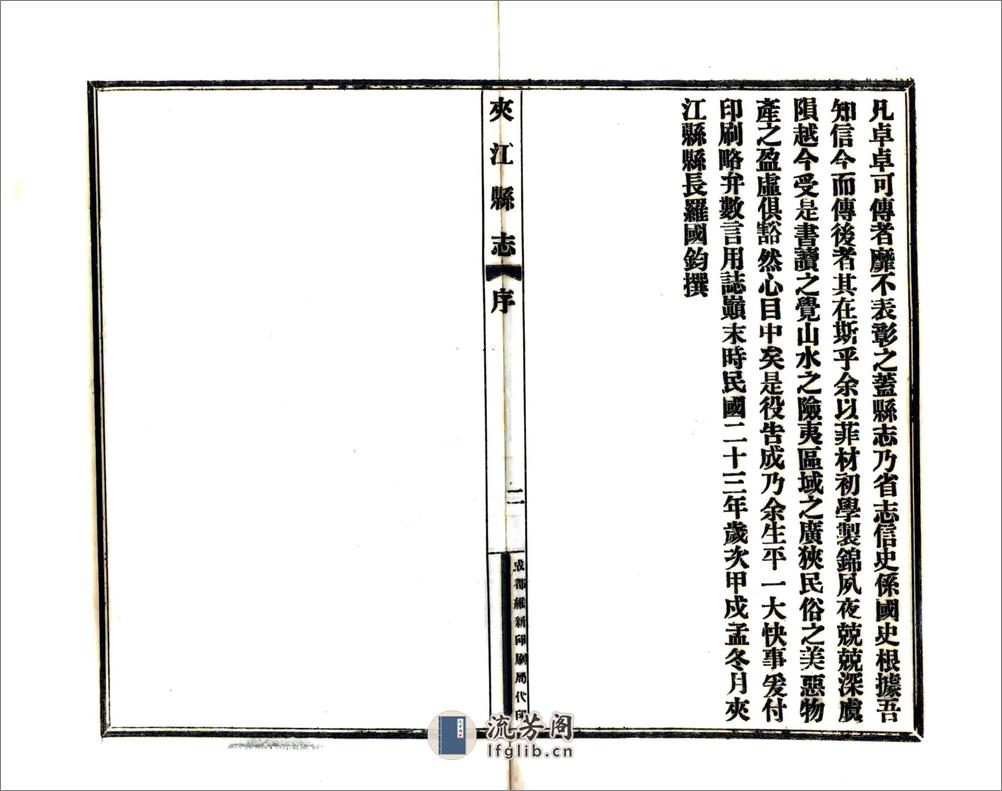 凡卓卓可傳者靡不表彰之蓋縣志乃省志信史係國史根據吾
知信今而傳後者其在斯乎余以菲材初學製錦夙夜兢兢深虞
隕越今受是書讀之覺山水之險夷區域之廣狹民俗之美惡物
產之盈虛俱豁然心目中矣是役告成乃余生平一大快事爰付
印刷略弁數言用誌巔末時民國二十三年歲次甲戌孟冬月夾
江縣縣長羅國鈞撰
夾江縣志 序 二 成都維新印刷局代印
流芳阁
lfglib.cn